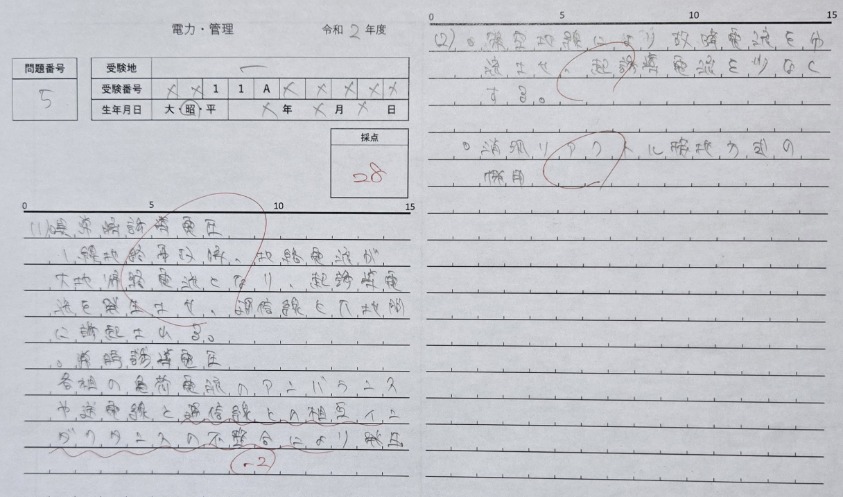 電力・管理
令和 2 年度
問題番号
5
受験地
受験番号 × × 1 1 A × × × × × ×
生年月日 大・昭・平 × 年 × 月 × 日
採点
28
0 5 10 15
(1)異常時誘導電圧
1線地絡事故時、地絡電流が
大地帰路電流となり、起誘導電
流を発生させ、通信線と大地間
に誘起される。
。常時誘導電圧
各相の負荷電流のアンバランス
や送電線と通信線との相互イン
ダクタンスの不整合により発生
-2
0 5 10 15
(2)。架空地線により故障電流を分
流させ、起誘導電流を少なく
する。
。消弧リアクトル接地方式の
採用